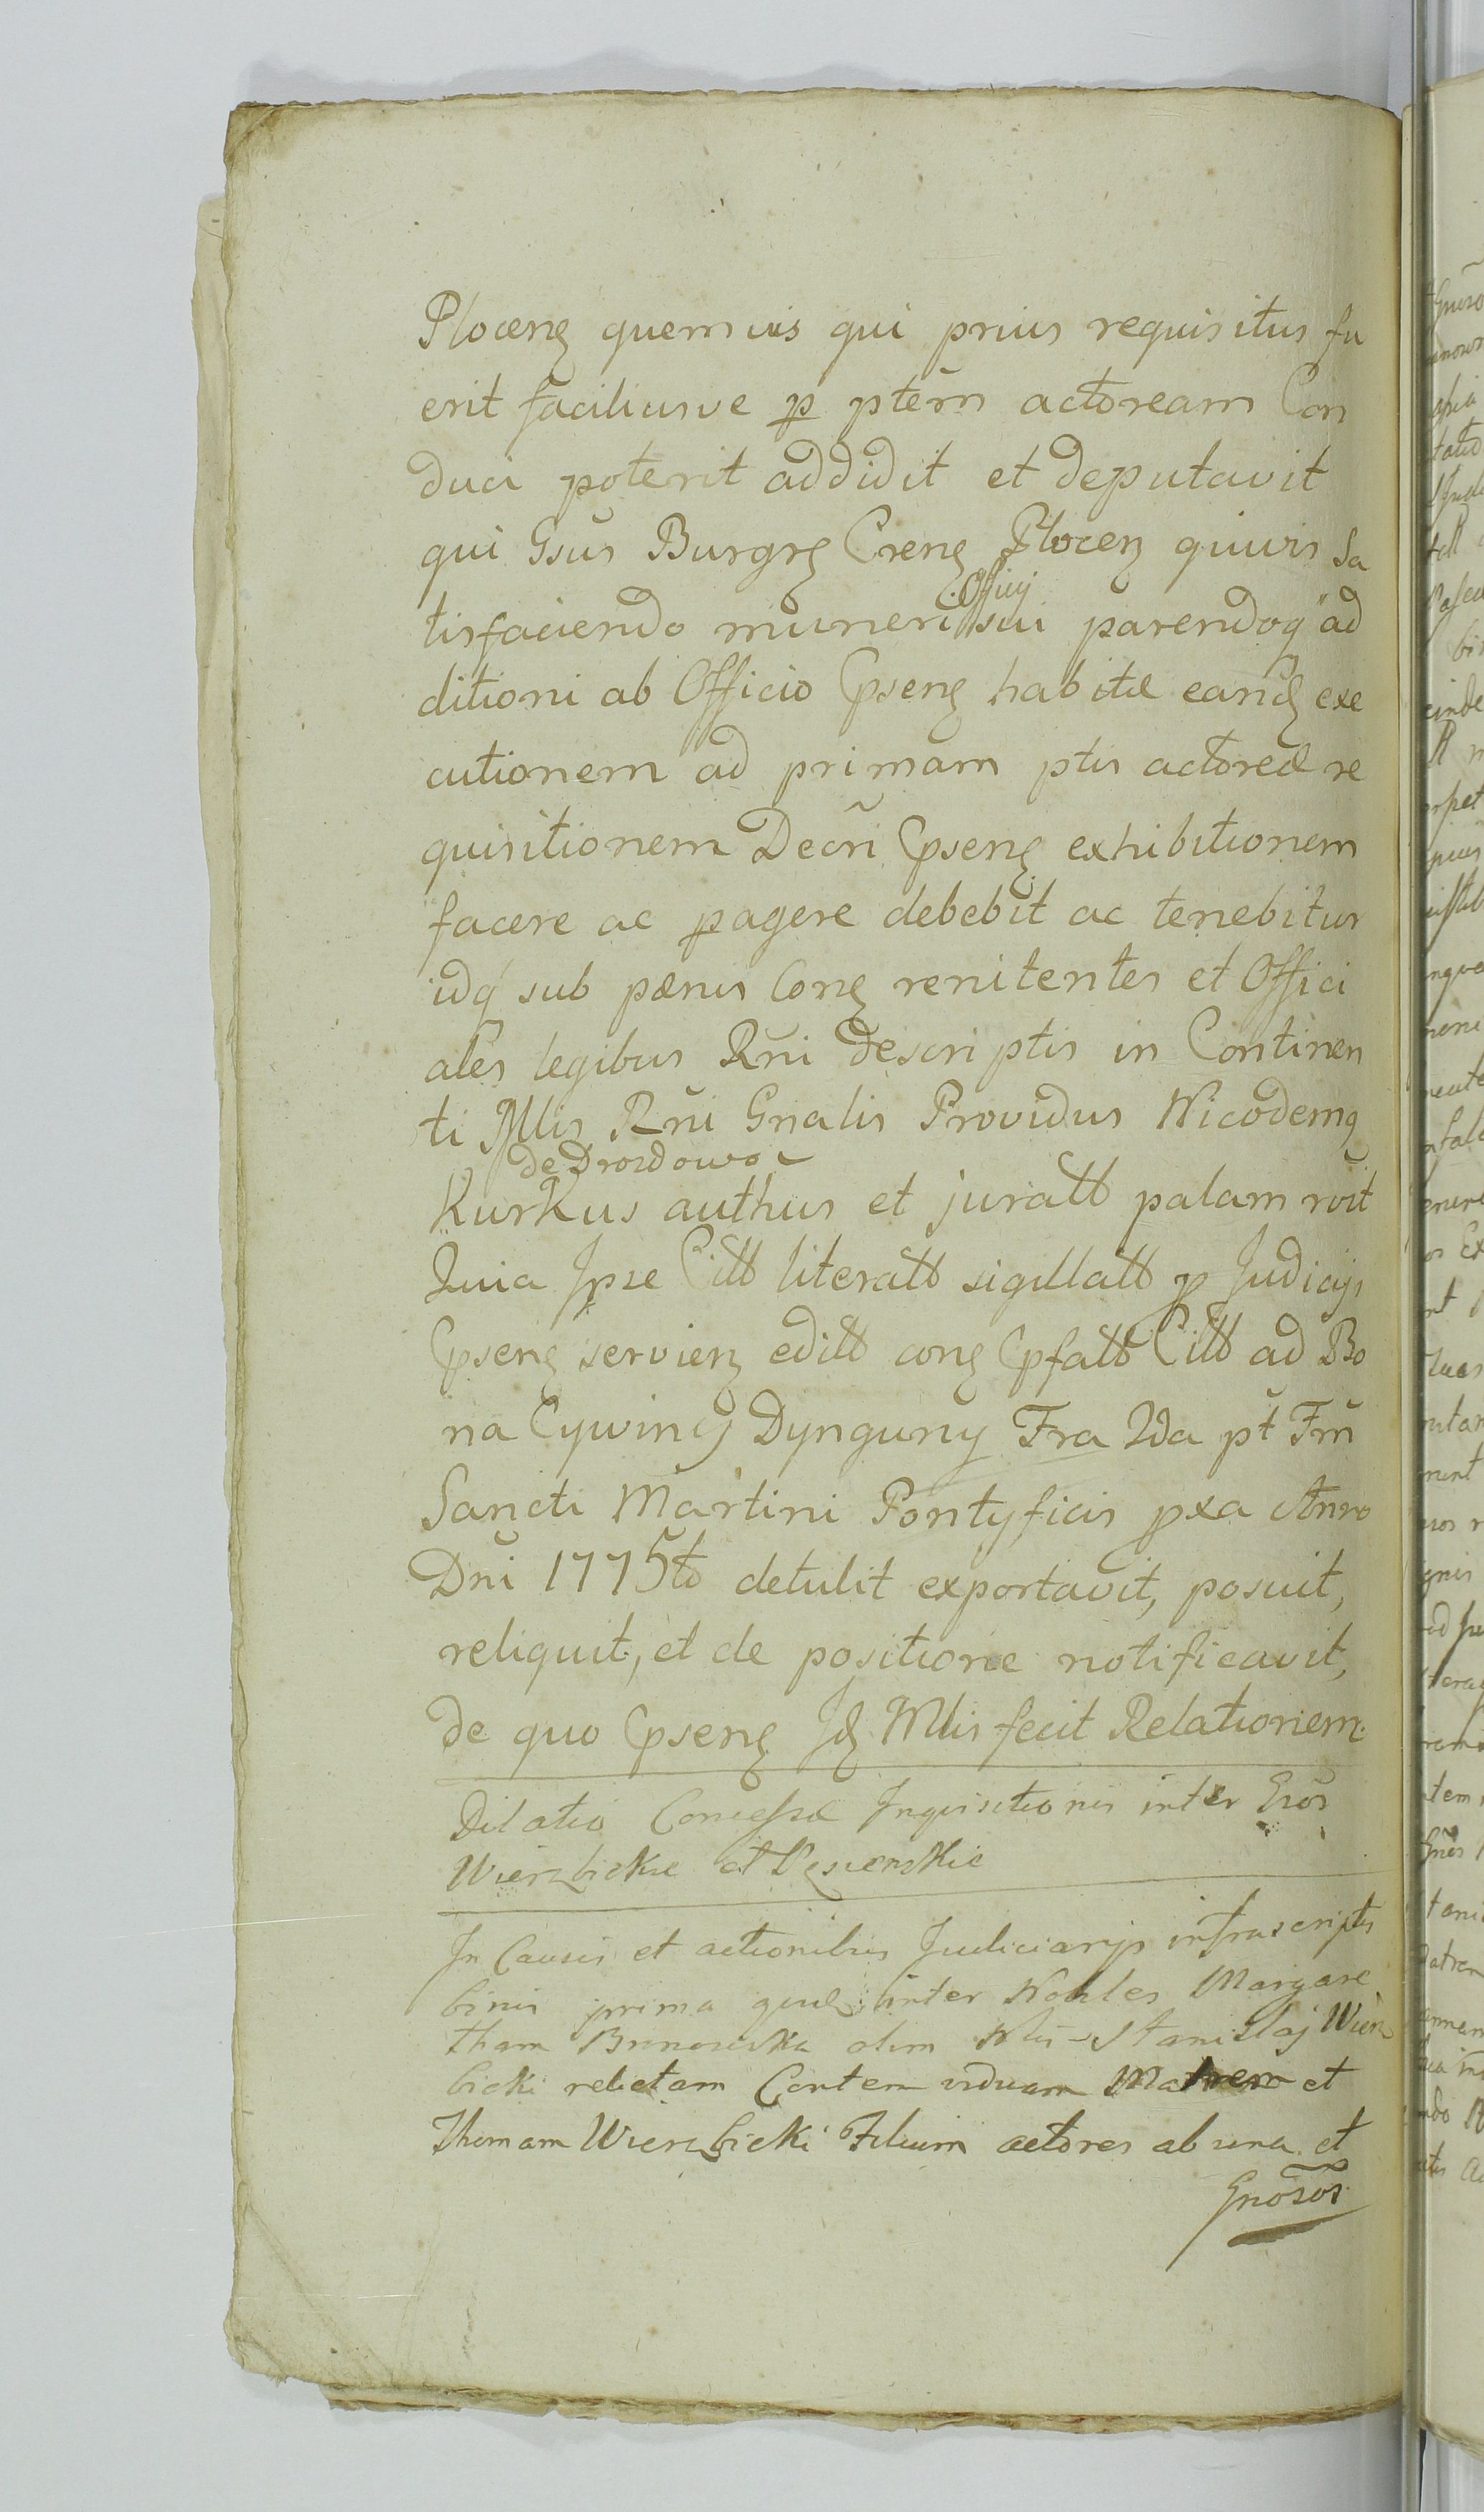 Plocenȩ quemvis qui prius requisitus fu
erit faciliusve p ptem actoream Con
duci poterit addidit et deputavit
qui Gsus Burgrȩ Crenȩ Plocenȩ quivis sa
tisfaciendo muneri Officij sui parendoq ad
ditioni ab Officio Cpsenȩ habitæ eandȩ exe
cutionem ad primam ptis actoreæ re
quisitionem Decri Cpsenȩ exhibitionem
facere ac pagere debebit ac tenebitur
idq sub pænis Conȩ renitentes et Offici
ales legibus Rni descriptis in Continen
ti Mlis Rni Gnalis Providus Nicodemq
de Drozdowo
Kurkus authus et juratt palam roit
Quia Ipse Citt literatt sigillatt p Judicijs
Cpsenȩ servienȩ editt conȩ Cpfatt Citt ad Bo
na Cywiny Dynguny Fra 2da pt Fm
Sancti Martini Pontyficis pxa Anno
Dni 1775to detulit exportavit, posuit,
reliquit, et de positione notificavit,
de quo Cpsenȩ Jdȩ Mlis fecit Relationem.
Dilatio Concessæ Inquisitionis inter Gsos
Wierzbickie et
In Causis et actionibus Judiciarijs infrascriptis
binis prima quæ inter Nobles Margare
tham olim Nlis Stanislaj Wierz
bicki relictam Contem viduam Matrem et
Thomam Wierzbicki Filium actores ab una et
Gnosos